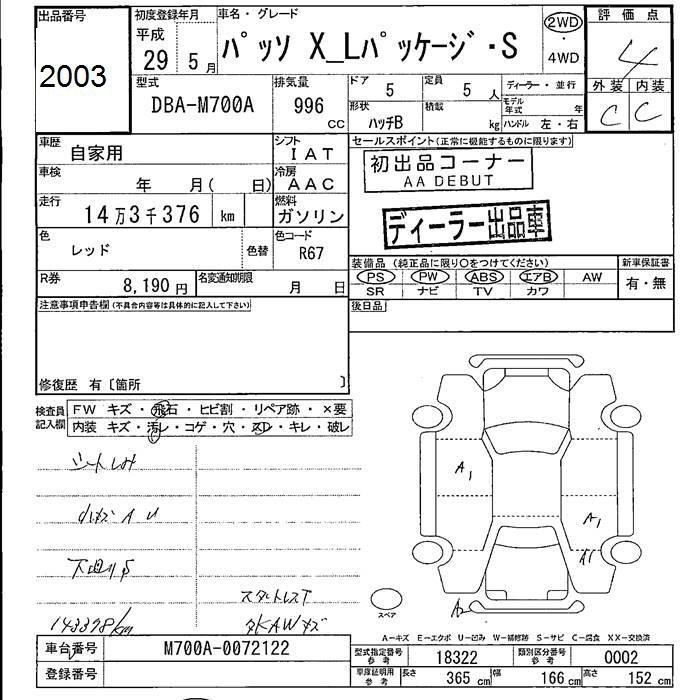 出品番号
2003
初度登録年月
平成
29 5月
車名・グレード
パッソ X_Lパッケージ・S
2WD
4WD
評価点
4
外装 内装
C C
型式
DBA-M700A
排気量
996
cc
ドア
5
定員
5 人
ディーラー・並行
形状
ハッチB
積載
kg
モデル年式
年
ハンドル 左・右
車歴
自家用
シフト
IAT
車検
年 月( 日)
冷房
AAC
走行
14万3千376 km
燃料
ガソリン
色
レッド
色替
色コード
R67
R券
8,190円
名変通知期限
月 日
セールスポイント(正常に機能するものに限ります)
初出品コーナー
AA DEBUT
ディーラー出品車
装備品 (純正品に限り○をつけてください)
新車保証書
PS PW ABS エアB AW
SR ナビ TV カワ
有・無
後日品
注意事項申告欄(不具合内容等は具体的に記入して下さい)
修復歴 有〔箇所 〕
検査員
記入欄
FW キズ・飛石・ヒビ割・リペア跡・×要
内装 キズ・汚レ・コゲ・穴・スレ・キレ・破レ
シートしみ
小キズ A U
下回りS
スタートレスT
143378km
A1
A1
A1
A2
スペア
A-キズ E-エクボ U-凹み W-補修跡 S-サビ C-腐食 XX-交換済
車台番号
M700A-0072122
登録番号
型式指定番号
参考
18322
類別区分番号
参考
0002
車庫証明用
参考
長さ
365 cm
幅
166 cm
高さ
152 cm